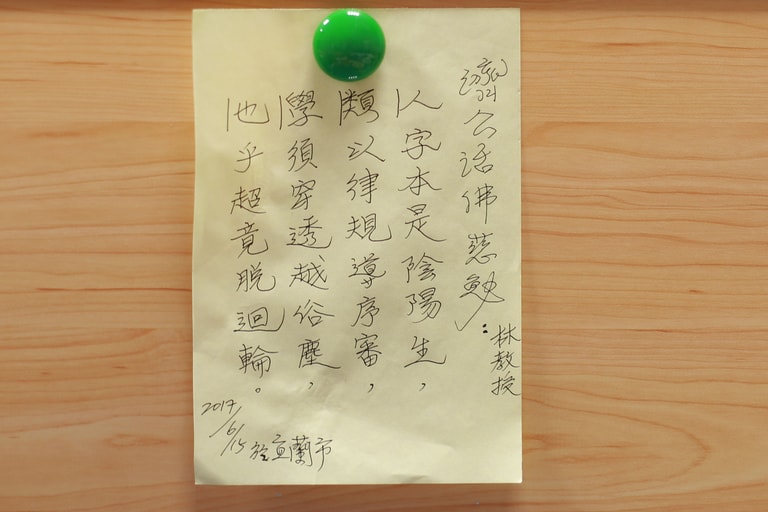 濟公活佛慈勉
：林教授
人字本是陰陽生，
類以律規導序審，
學須穿透越俗塵，
也乎超竟脫迴輪。
2017/6/15 於宜蘭市